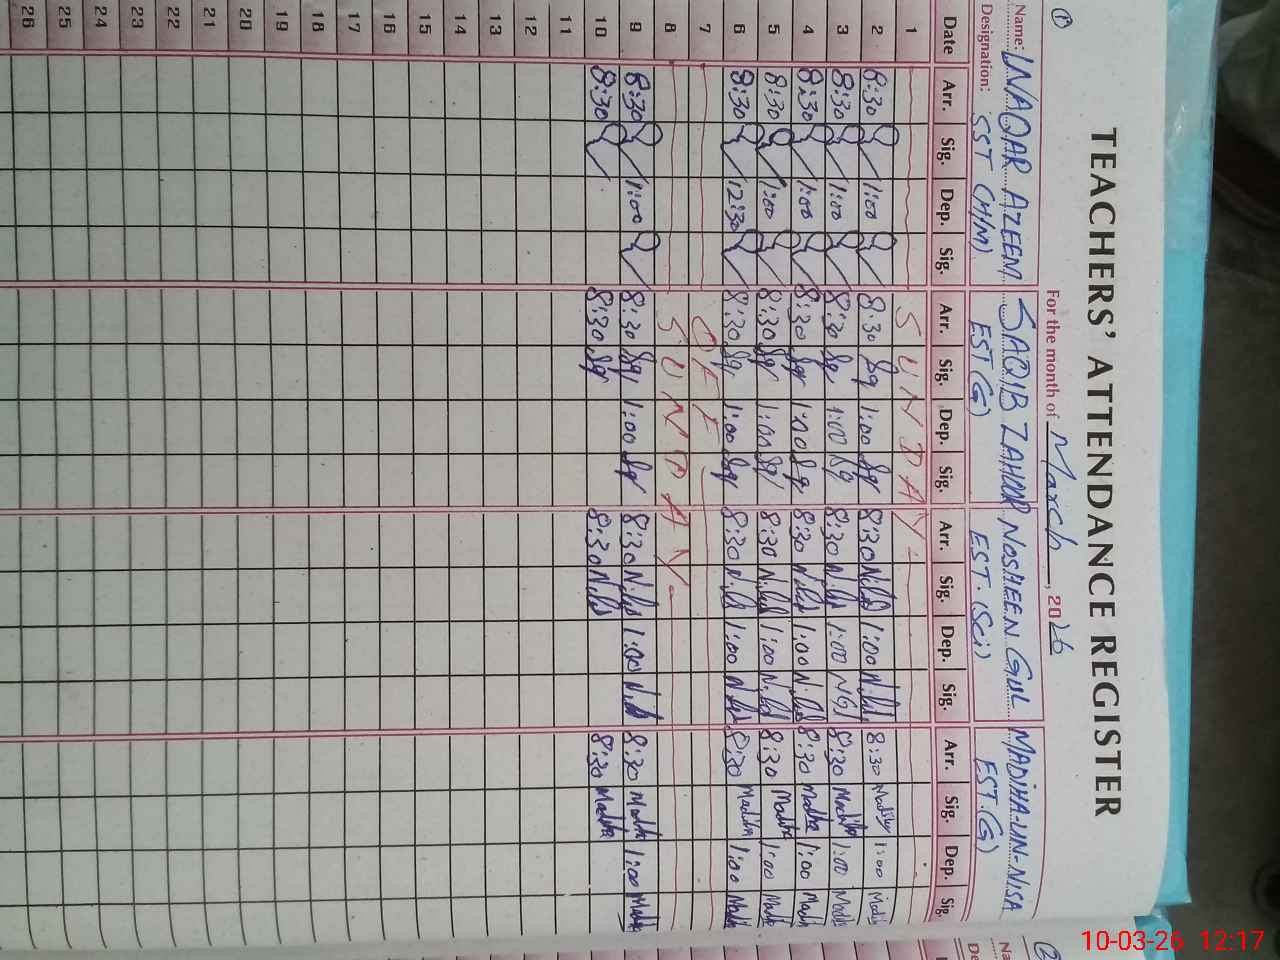 TEACHERS' ATTENDANCE REGISTER
For the month of March, 2026
①
Name: WAQAR AZEEM SAQIB ZAHOOR NOSHEEN GUL MADIHA-UN-NISA
Designation: SST (H/M) EST (G) EST. (Sci) EST. (G)
Date Arr. Sig. Dep. Sig. Arr. Sig. Dep. Sig. Arr. Sig. Dep. Sig. Arr. Sig. Dep. Sig.
1 SUNDAY
2 8:30 1:00 8:30 Sq 1:00 Sq 8:30 1:00 8:30 Madiha 1:00 Madiha
3 8:30 1:00 8:30 Sq 1:00 Sq 8:30 1:00 NG 8:30 Madiha 1:00 Madiha
4 8:30 1:00 8:30 Sq 1:00 Sq 8:30 1:00 8:30 Madiha 1:00 Madiha
5 8:30 1:00 8:30 Sq 1:00 Sq 8:30 1:00 8:30 Madiha 1:00 Madiha
6 8:30 12:30 8:30 Sq 1:00 Sq 8:30 1:00 8:30 Madiha 1:00 Madiha
7 OFF
8 SUNDAY
9 8:30 1:00 8:30 Sq 1:00 Sq 8:30 1:00 8:30 Madiha 1:00 Madiha
10 8:30 8:30 Sq 8:30 8:30 Madiha
11
12
13
14
15
16
17
18
19
20
21
22
23
24
25
26
②
Na
De
10-03-26 12:17